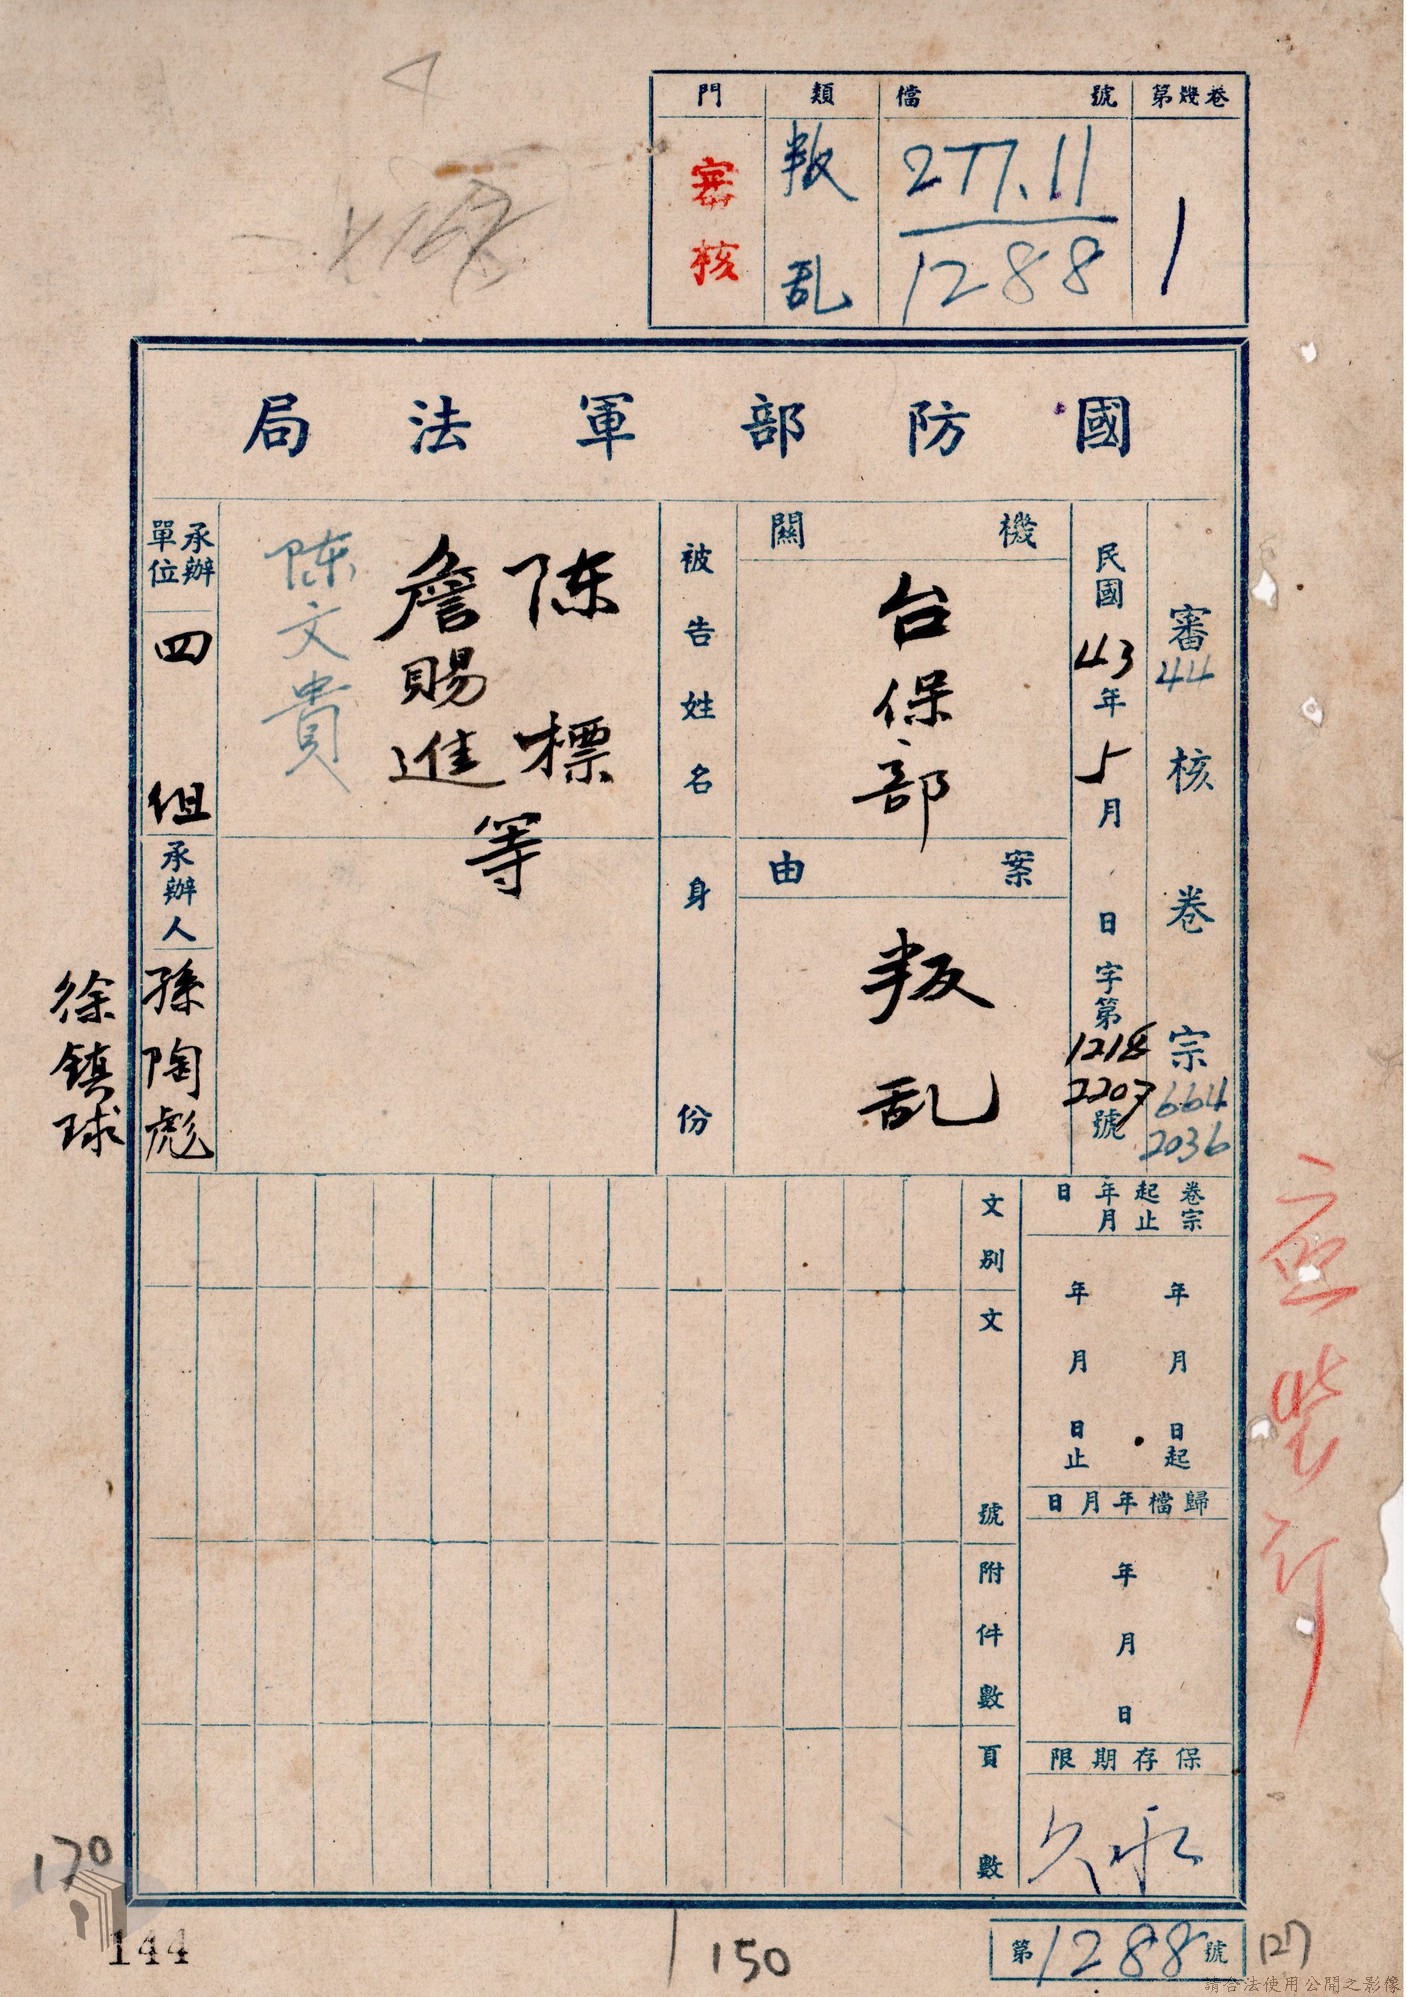 門 類 檔號 第幾卷
審核 叛乱 277.11 1
1288
國防部軍法局
審核卷宗
44
664
2036
民國43年5月 日字第1218 2207號
機關
台保部
案由
叛乱
被告姓名
陈標
詹賜進
等
陈文貴
身份
承辦單位
四组
承辦人
孫陶彪
徐鎮球
卷宗起止年月日
年月日起
年月日止
歸檔年月日
年月日
保存期限
永久
文別
文號
附件數
頁數
170
144
150
第1288號
127
請合法使用公開之影像